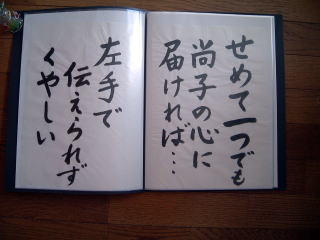 せめて一つでも
尚子の心に
届ければ…
左手で
伝えられず
くやしい